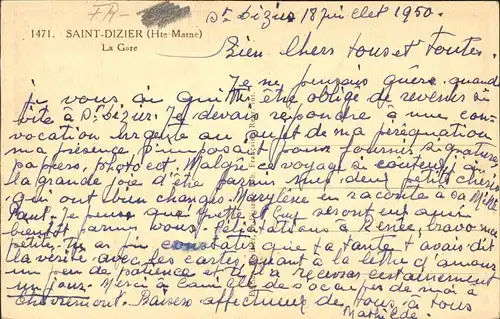 FR-
St Dizier 18 juillet 1950.
1471. SAINT-DIZIER (Hte-Marne)
La Gare
Bien Chers tous et Toutes.
Je ne pensais guère quand
je vous ai quitté être obligé de revenir si
vite à St Dizier. Je devais répondre à une con-
vocation urgente au sujet de ma péréquation
ma présence s'imposait pour fournir signature,
papiers, photo ect. Malgré ce voyage si couteux j'ai
la grande joie d'être parmi mes deux petits chéris
qui ont bien changés. Marylène en raconte à sa
Paul. Je pense que Yvette et Guy seront aussi
bientôt parmi vous. Félicitations à Renée, bravo ma
petite. Tu as pu constater que ta tante t'avais dit
la vérité avec les cartes, quant à la lettre d'amour
un peu de patience et tu la recevras certainement
un jour. Merci à Camille de s'occuper de moi à
Chèvremont. Baisers affectueux de tous à tous
Mathilde.